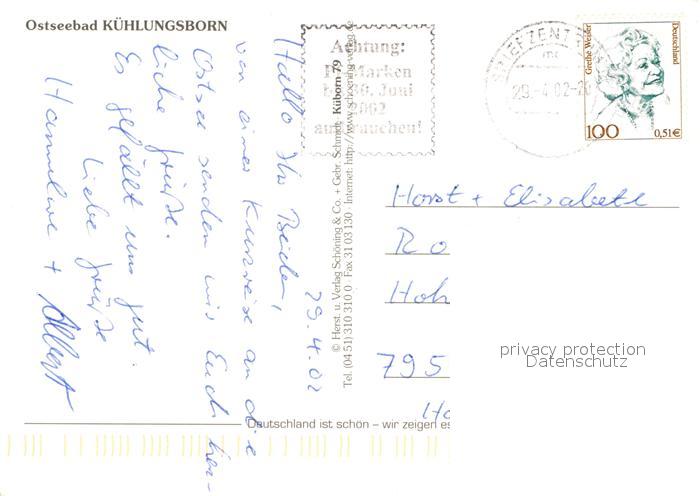 Ostseebad KÜHLUNGSBORN
Achtung:
Marken
30. Juni
2002
aufbrauchen!
BRIEFZENT
mc
29.-4.02-2
Grethe Weiser
Deutschland
100
0,51€
29.4.02
Hallo Ihr Beiden,
von einer Kurzreise an die
Ostsee senden wir Euch herz-
liche Grüße.
Es gefällt uns gut.
Liebe Grüße
Hannelore + Albert
Küborn 79
© Herst. u. Verlag Schöning & Co. + Gebr. Schmidt
Tel. (04 51) 310 310 0 · Fax 31 03 130 · Internet: http://www.schoening-verlag.de
Horst + Elisabeth
Ro
Hoh
795
Ho
privacy protection
Datenschutz
Deutschland ist schön – wir zeigen es